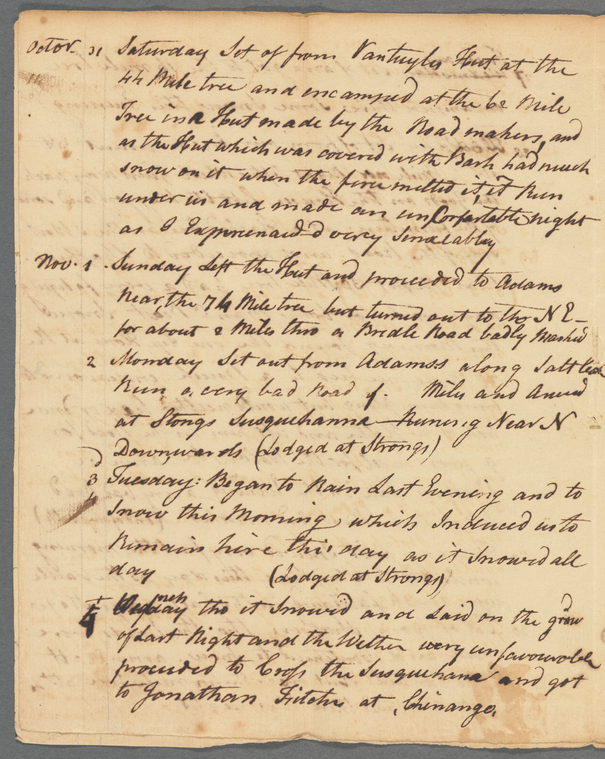 Octor. 31 Saturday Set of from Vantuyles Hut at the
44 Mile tree and encamped at the 62 Mile
Tree in a Hut made by the Road makers, and
as the Hut which was covered with Bark had much
snow on it when the fire melted it, it Run
under us and made an uncomfortable night
as I Experienced very Senceably
Nov. 1 Sunday Left the Hut and proceeded to Adams
Near the 74 Mile tree but turned out to the N E
for about 2 Miles thro a Bridle Road badly Marked
2 Monday Set out from Adamss along Salt
Run a very bad Road of. Miles and
at Strongs Susquehanna Runing Near N
Downwards (Lodged at Strongs)
3 Tuesday: Began to Rain Last Evening and to
Snow this Morning which Induced us to
Remain here this day as it Snowed all
day (Lodged at Strongs)
4 Wednesday tho it Snowed and Laid on the
of Last Night and the Wether very unfavourable
proceeded to Cross the Susquehana and got
to Jonathan Fitchs at Chinango,